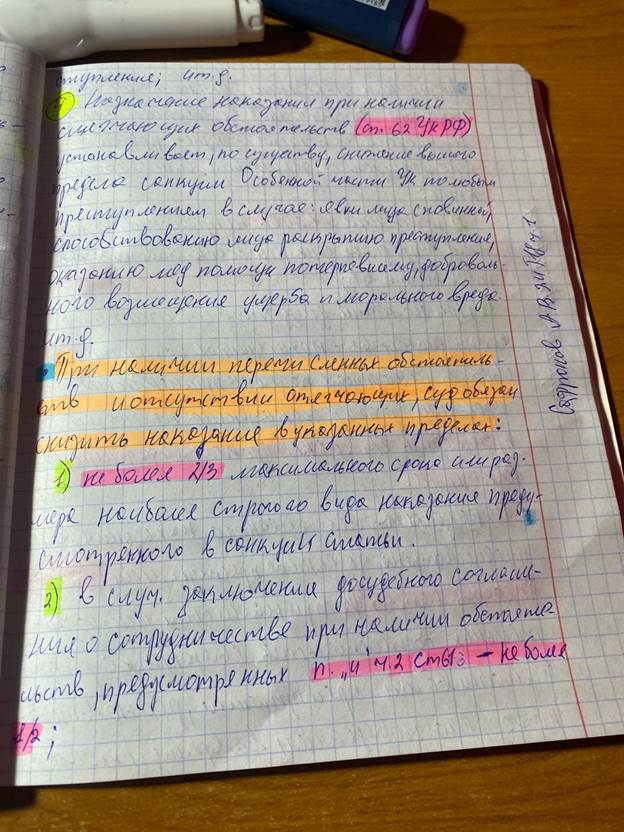 ступления; и т.д.
4) Назначение наказания при наличии
смягчающих обстоятельств (ст. 62 УК РФ)
устанавливает, по существу, снижение высшего
предела санкции Особенной части УК по любым
преступлением в случае: явки лица с повинной,
способствованию лица раскрытию преступления,
оказанию мед помощи потерпевшему, доброволь-
ного возмещения ущерба и морального вреда
и т.д.
При наличии перечисленных обстоятель-
ств и отсутствии отягчающих, суд обязан
снизить наказание в указанных пределах:
1) не более 2/3 максимального срока или раз-
мера наиболее строгого вида наказания преду-
смотренного в санкции статьи.
2) в случ. заключения досудебного соглаше-
ния о сотрудничестве при наличии обстояте-
льств, предусмотренных п. "и" ч.2 ст 61 - не более
1/2;
Сафронов А.В.